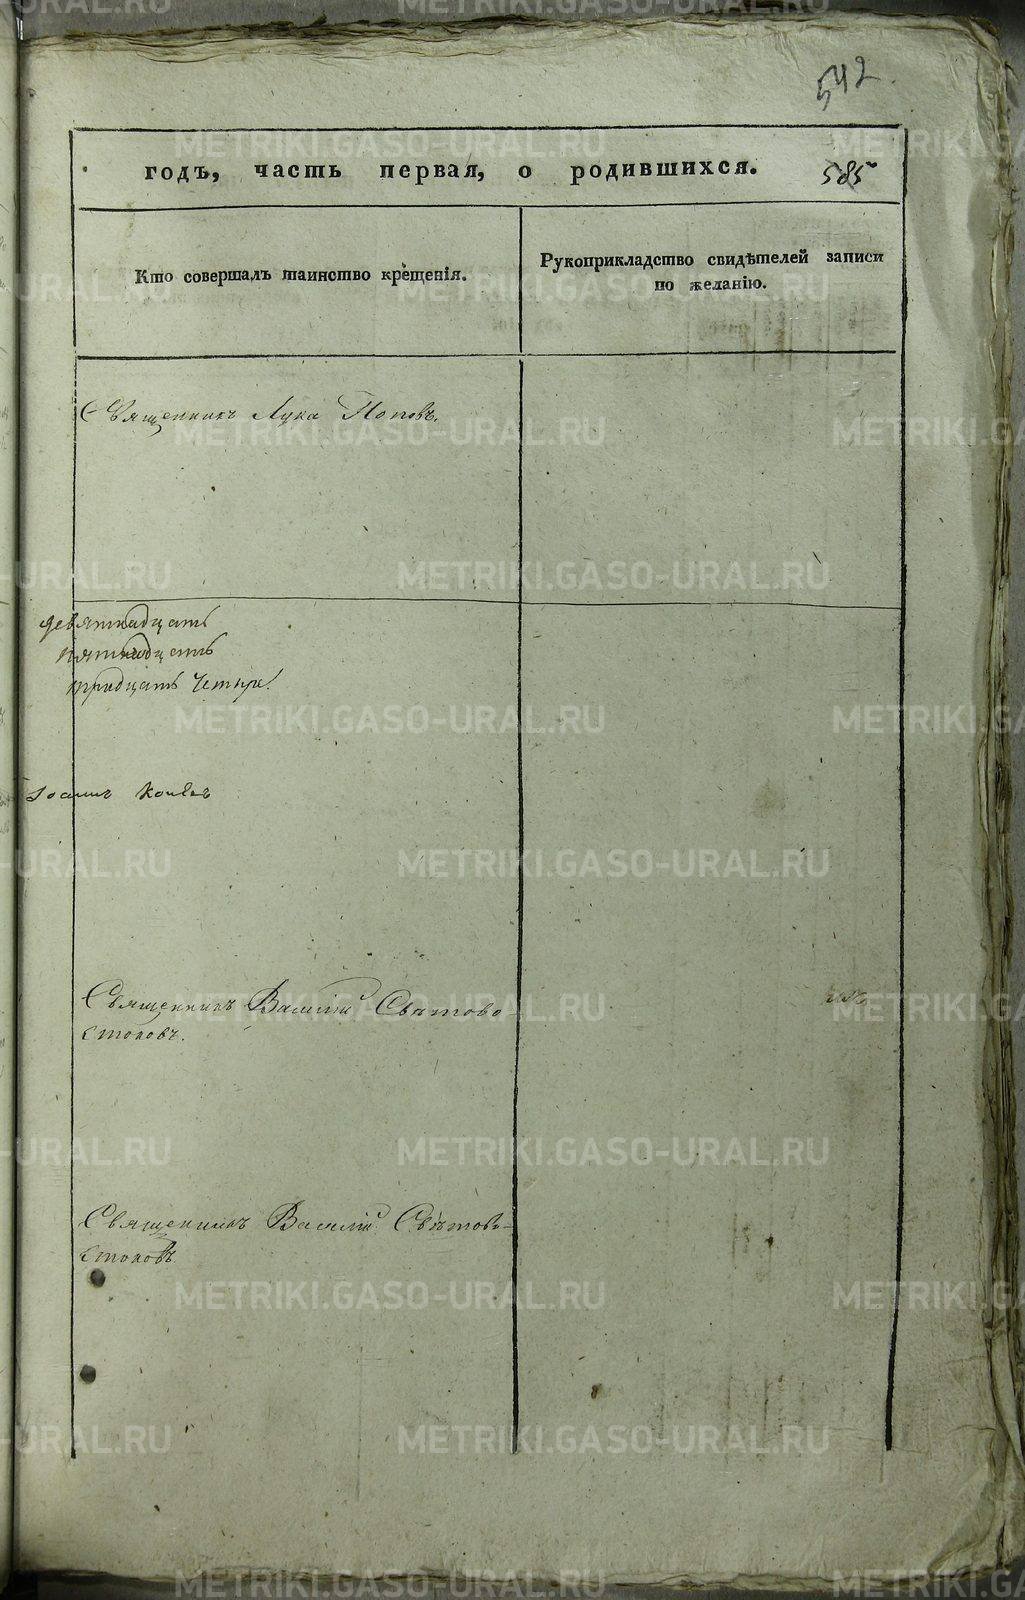 542.
годъ, часть первая, о родившихся. 585
Кто совершалъ таинство крещенія.
Рукоприкладство свидѣтелей записи
по желанію.
Священникъ Лука Поповъ.
девятнадцать
пятнадцать
тридцать четыре.
Іоаннъ
Священникъ Василій Свѣтово-
стоковъ.
Священникъ Василій Свѣтово-
стоковъ
METRIKI.GASO-URAL.RU